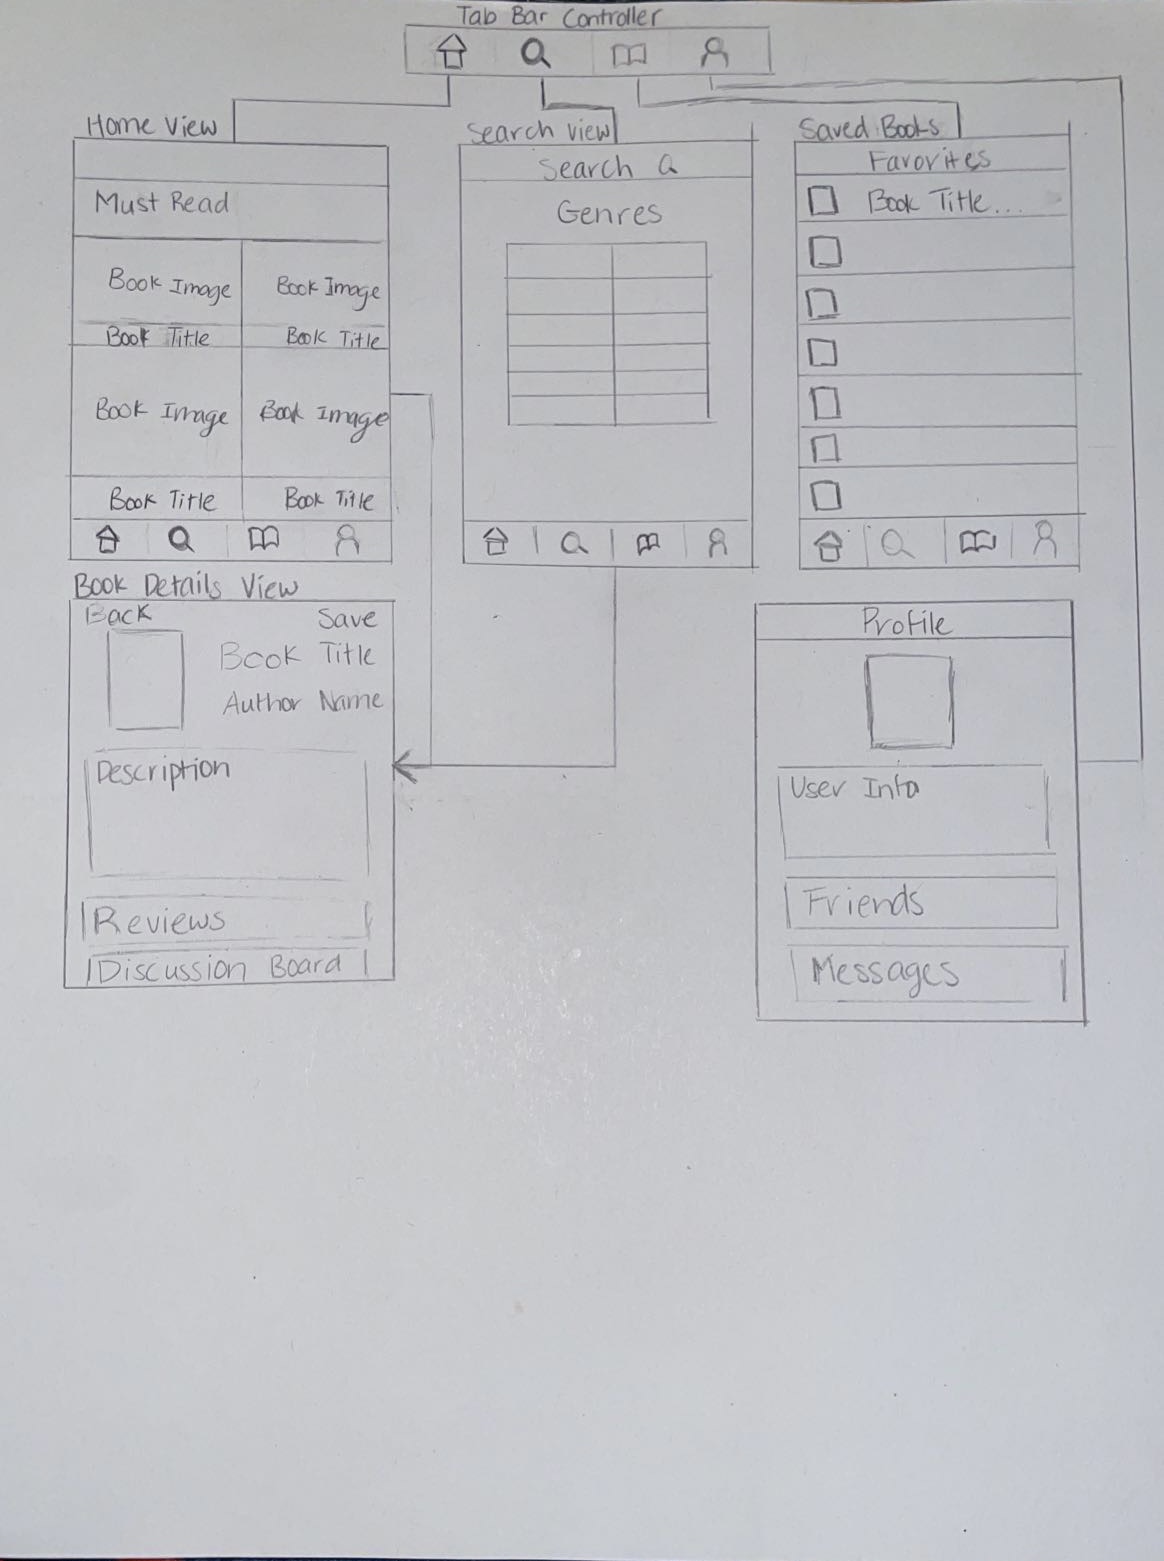 Tab Bar Controller
Home View
Must Read
Book Image Book Image
Book Title Book Title
Book Image Book Image
Book Title Book Title
Search View
Search
Genres
Saved Books
Favorites
Book Title...
Book Details View
Back Save
Book Title
Author Name
Description
Reviews
Discussion Board
Profile
User Info
Friends
Messages